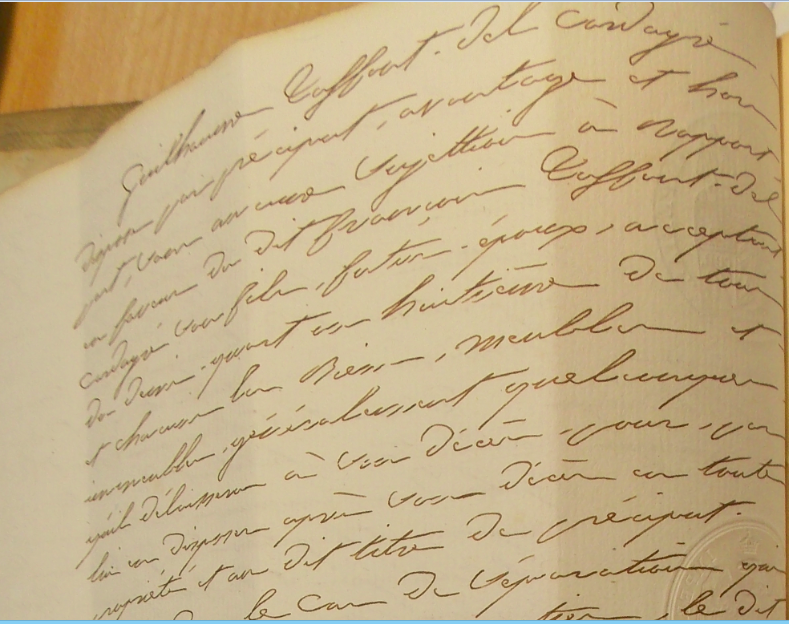 Guilhaume Toffaut. del Cardayré
dispose par préciput, avantage et hors
part, sans aucune sujettion à rapport
en faveur du dit François Toffaut-del
cardayré son fils, futur époux, acceptant
du susdit, quart en huitième de tous
et chacun les biens, meubles et
immeubles, généralement quelconques
qu'il délaissera à son décès, pour, par
lui en disposer après son décès en toute
propriété et au dit titre de préciput.
le cas de séparation, qui
le dit